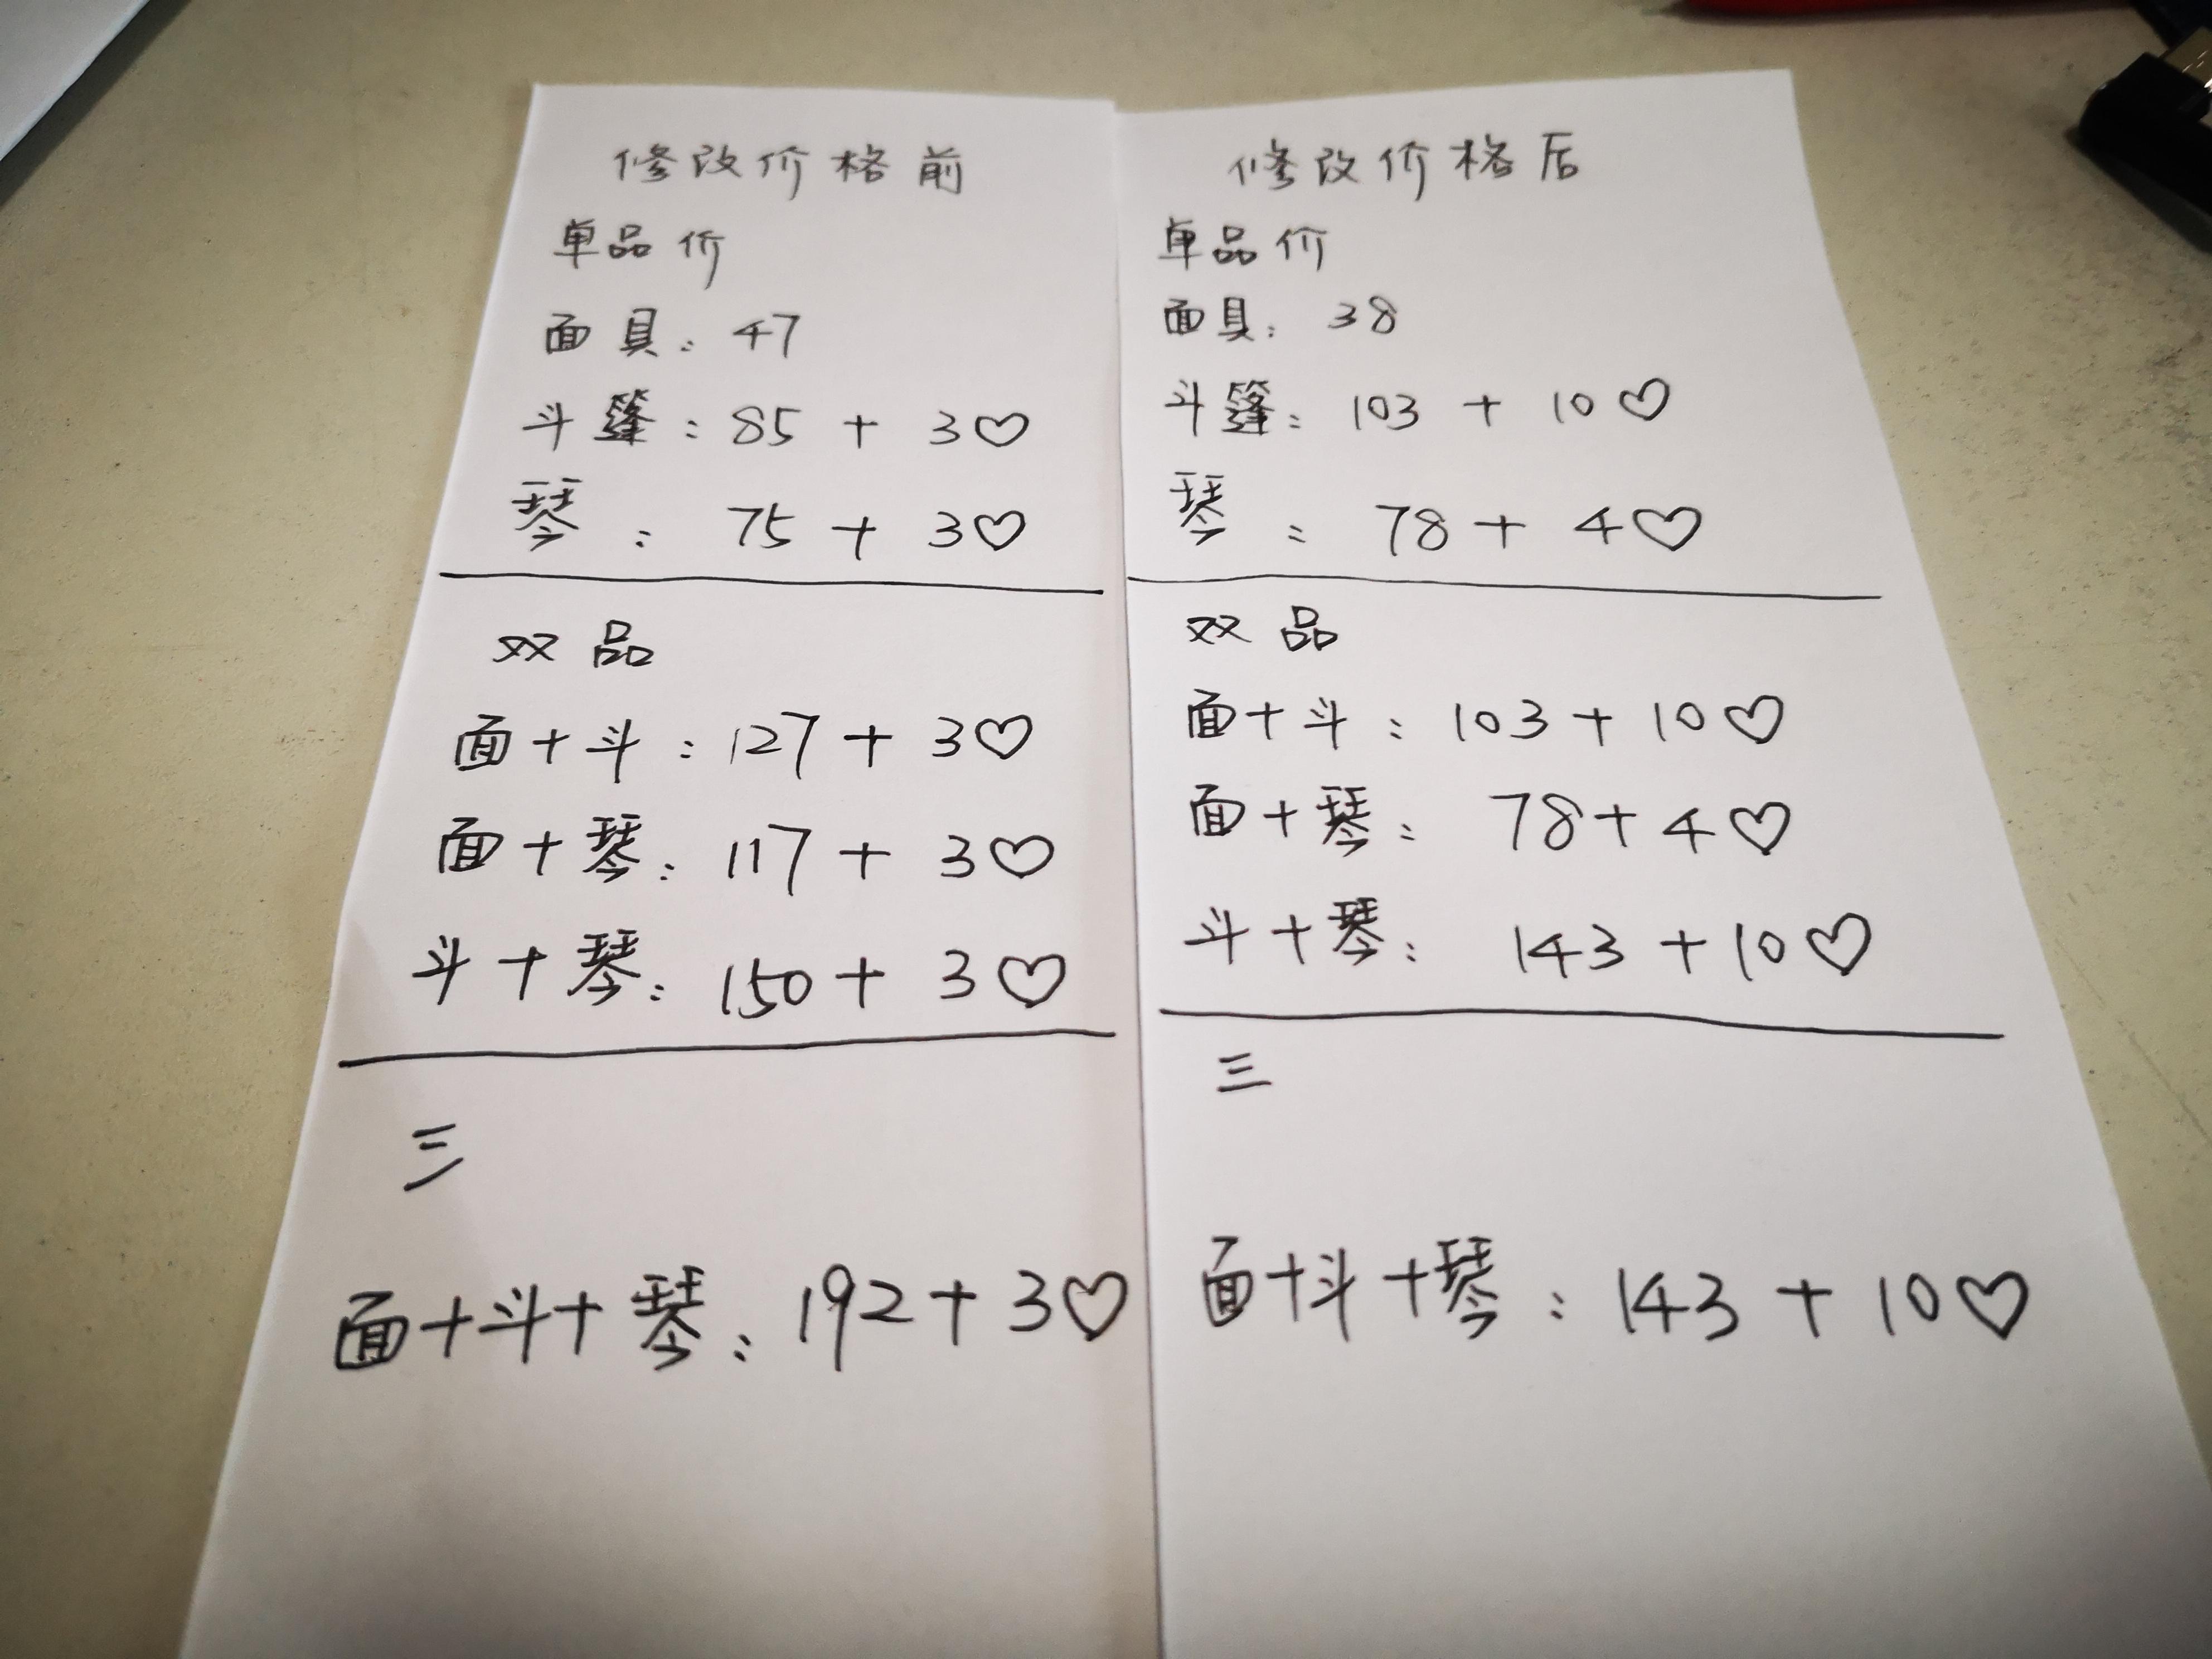 修改价格前
单品价
面具：47
斗篷：85 + 3♡
琴：75 + 3♡
双品
面+斗：127 + 3♡
面+琴：117 + 3♡
斗+琴：150 + 3♡
三
面+斗+琴：192 + 3♡
修改价格后
单品价
面具：38
斗篷：103 + 10♡
琴：78 + 4♡
双品
面+斗：103 + 10♡
面+琴：78 + 4♡
斗+琴：143 + 10♡
三
面+斗+琴：143 + 10♡